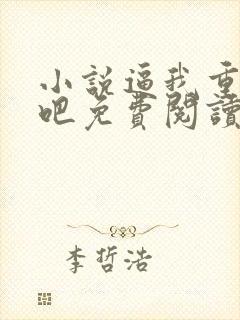 小說逼我重
吧免費閱讀
李哲浩